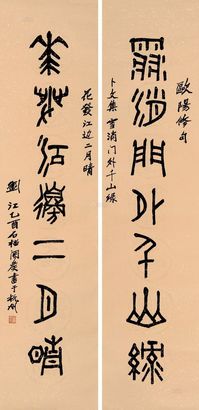 歐陽修句
雪消門外千山綠
卜文集雪消门外千山绿
花發江边二月晴
花發江邊二月晴
劉江乙酉石榴開書于杭州